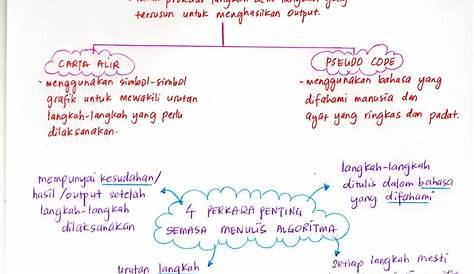 tersusun untuk menghasilkan output.
CARTA ALIR
- menggunakan simbol-simbol
grafik untuk mewakili urutan
langkah-langkah yang perlu
dilaksanakan.
PSEUDO CODE
- menggunakan bahasa yang
difahami manusia dan
ayat yang ringkas dan padat.
mempunyai kesudahan/
hasil/output setelah
langkah-langkah
dilaksanakan
langkah-langkah
ditulis dalam bahasa
yang difahami
4 PERKARA PENTING
SEMASA MENULIS ALGORITMA
urutan langkah
setiap langkah mesti